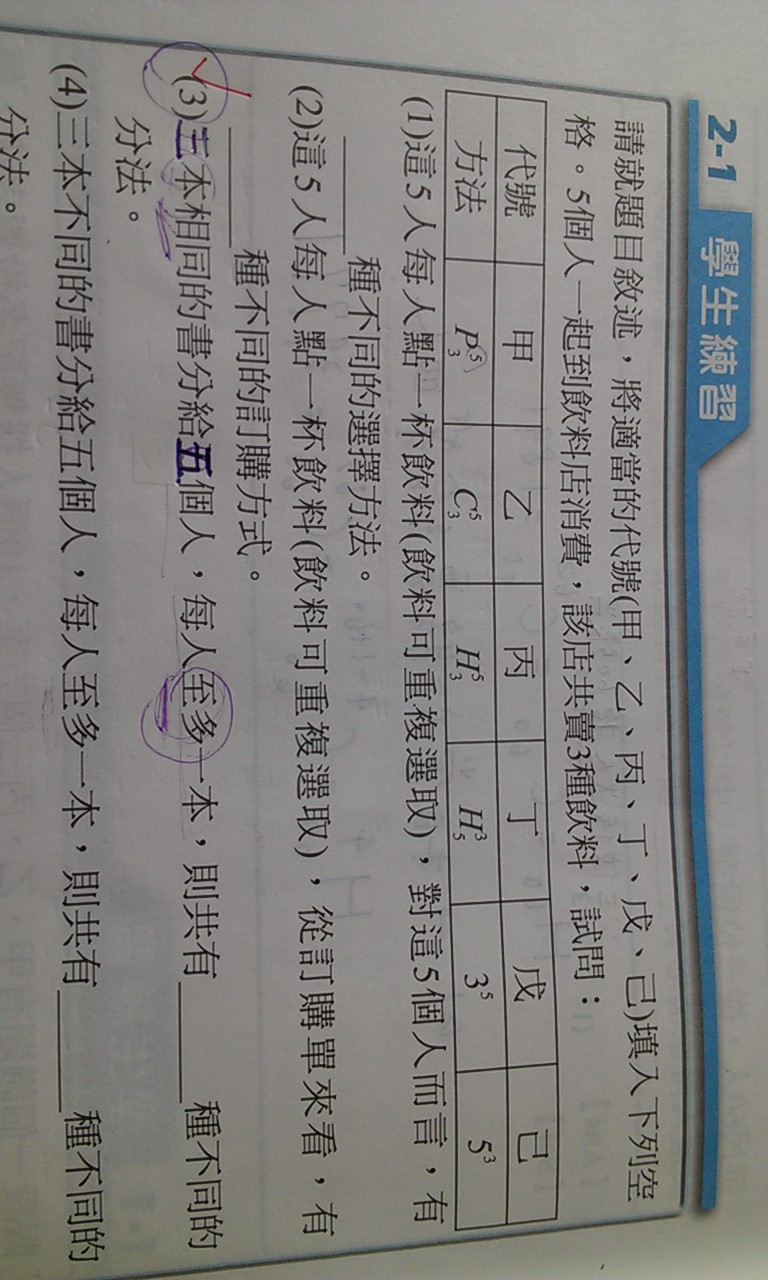 2-1 學生練習
請就題目敘述，將適當的代號(甲、乙、丙、丁、戊、己)填入下列空
格。5個人一起到飲料店消費，該店共賣3種飲料，試問：
代號 甲 乙 丙 丁 戊 己
方法 P⁵₃ C⁵₃ H⁵₃ H³₅ 3⁵ 5³
(1)這5人每人點一杯飲料(飲料可重複選取)，對這5個人而言，有
______種不同的選擇方法。
(2)這5人每人點一杯飲料(飲料可重複選取)，從訂購單來看，有
______種不同的訂購方式。
(3)三本相同的書分給五個人，每人至多一本，則共有______種不同的
分法。
(4)三本不同的書分給五個人，每人至多一本，則共有______種不同的
分法。